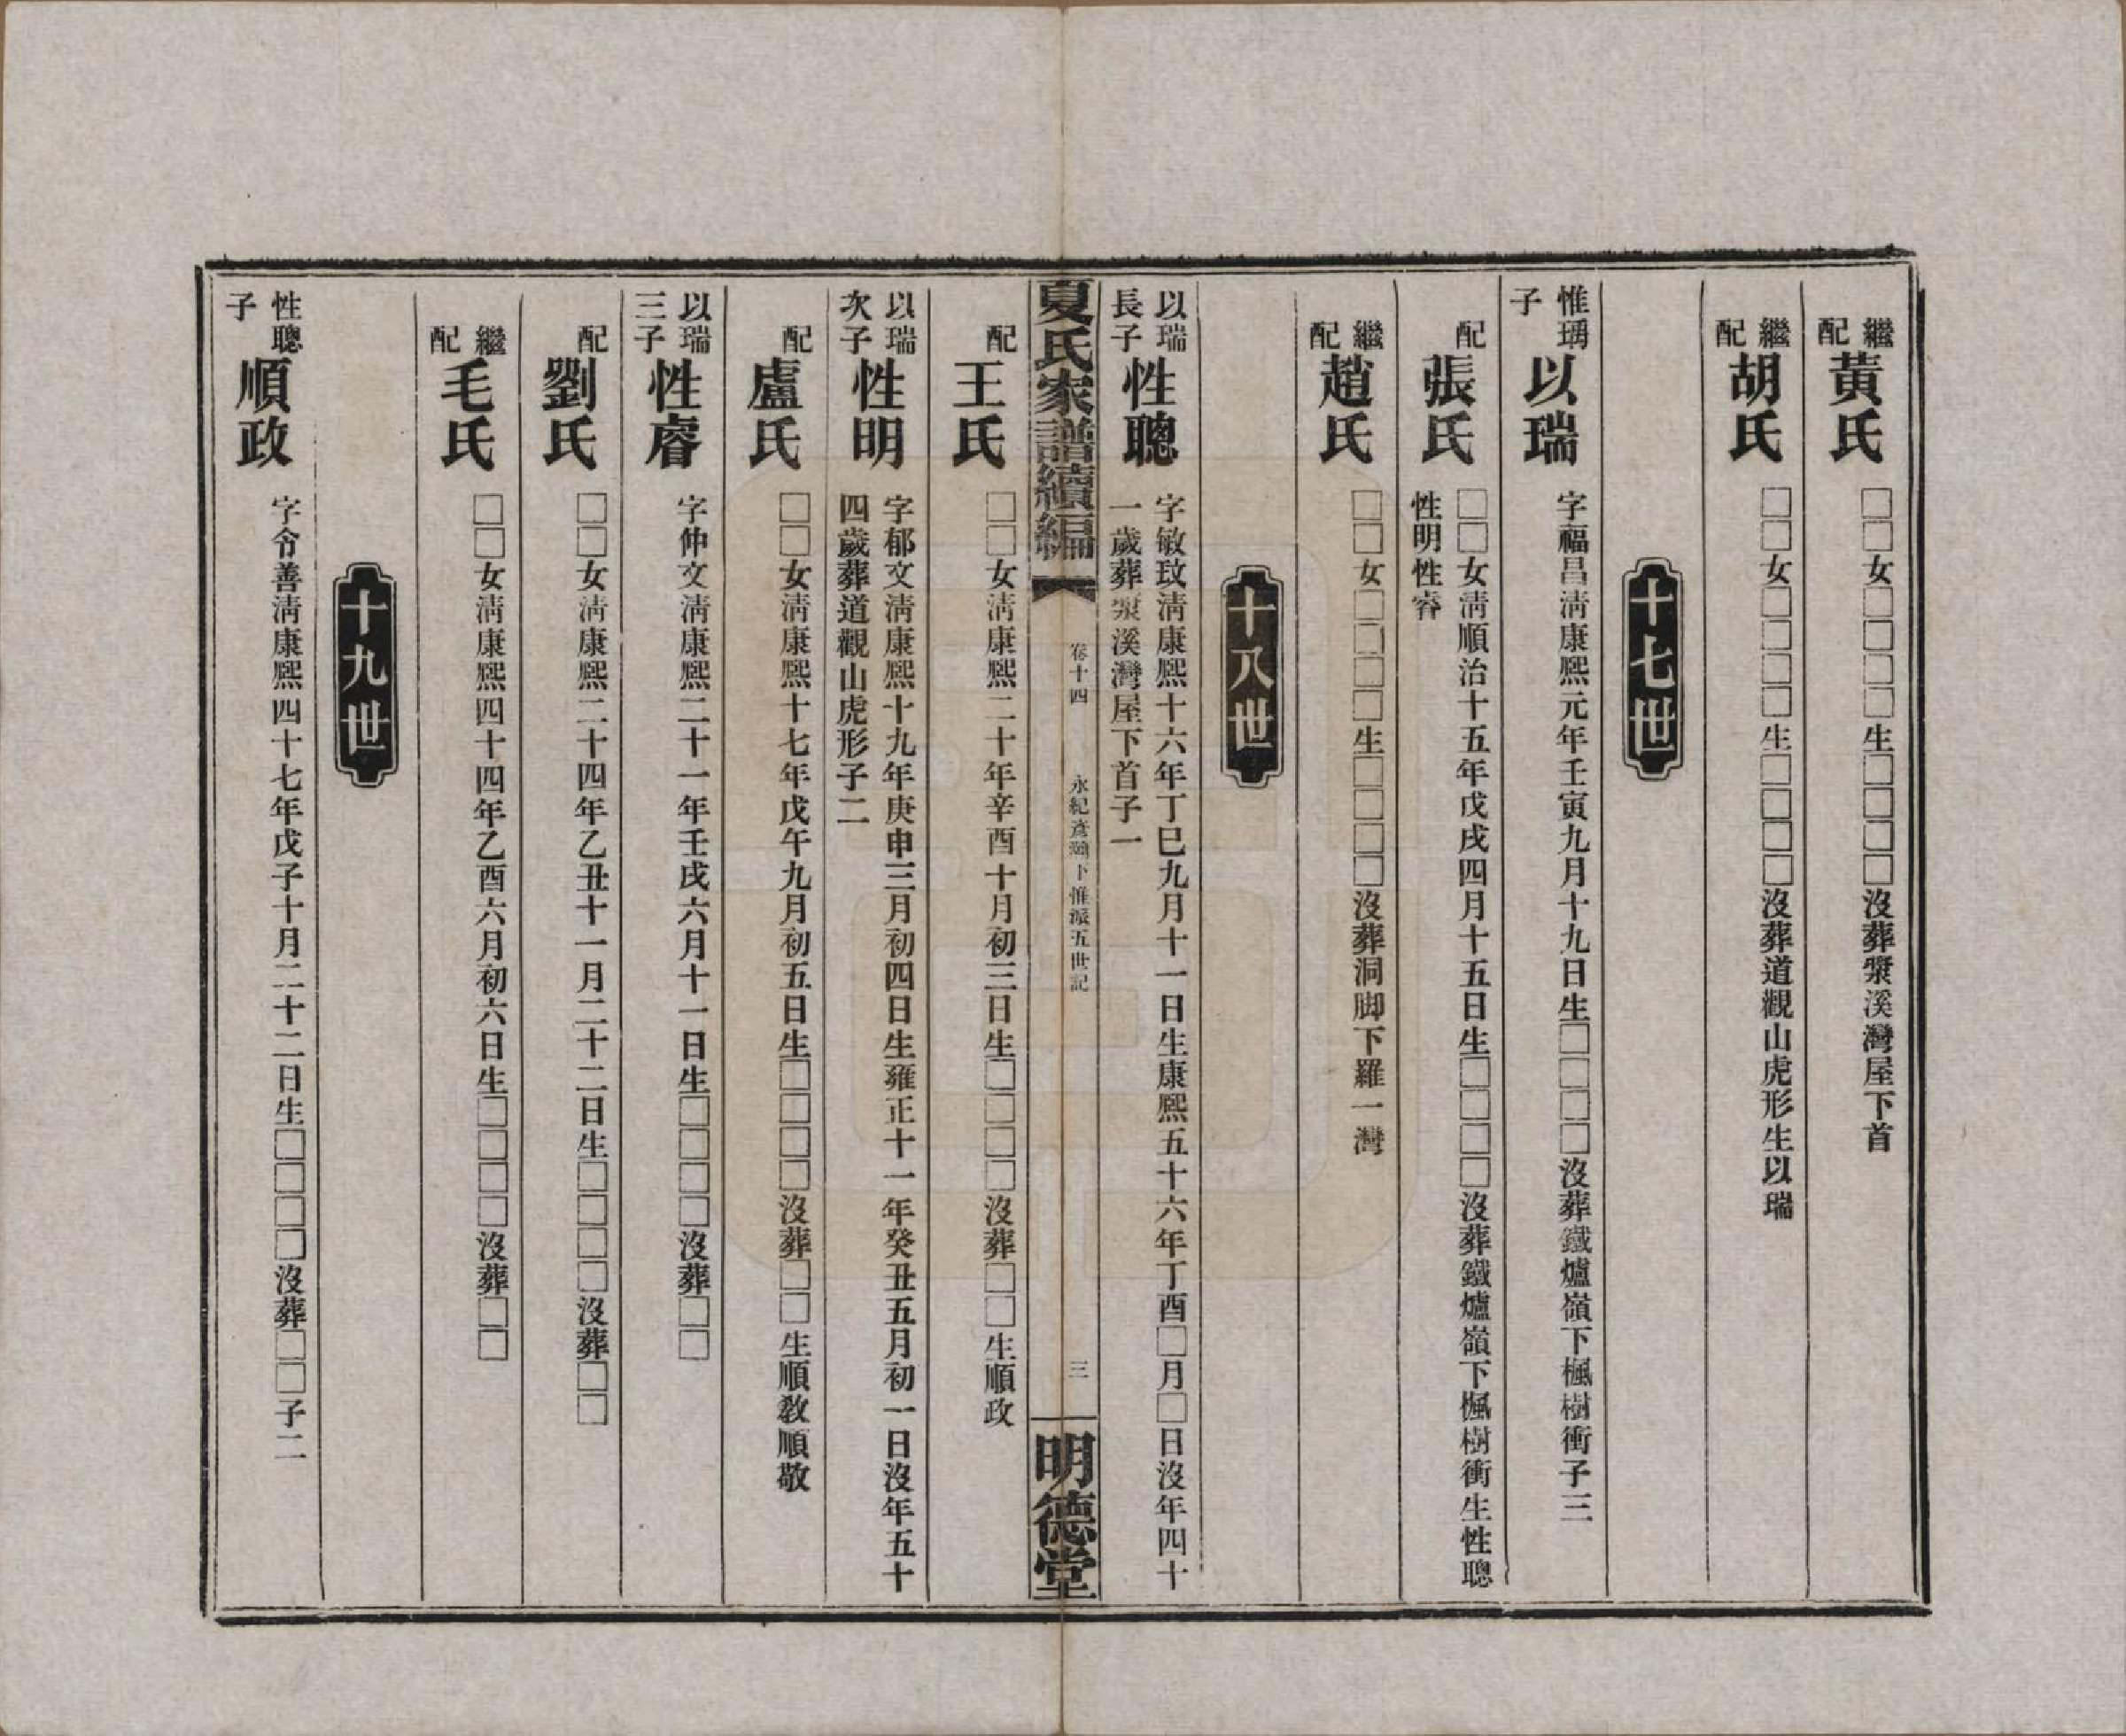 繼配 黃氏 □□女□□□□生□□□□沒葬漿溪灣屋下首
繼配 胡氏 □□女□□□□生□□□□沒葬道觀山虎形生以瑞
十七世
惟瑀子 以瑞 字福昌淸康熙元年壬寅九月十九日生□□□□沒葬鐵爐嶺下楓樹衝子三
配 張氏 □□女淸順治十五年戊戌四月十五日生□□□□沒葬鐵爐嶺下楓樹衝生性聰
性明性睿
繼配 趙氏 □□女□□□□生□□□□沒葬洞脚下羅一灣
十八世
以瑞長子 性聰 字敏玟淸康熙十六年丁巳九月十一日生康熙五十六年丁酉□月□日沒年四十
一歲葬漿溪灣屋下首子一
夏氏家譜續編 卷十四 永紀彥灝下惟派五世記 三 明德堂
配 王氏 □□女淸康熙二十年辛酉十月初三日生□□□□沒葬□□生順政
以瑞次子 性明 字郁文淸康熙十九年庚申三月初四日生雍正十一年癸丑五月初一日沒年五十
四歲葬道觀山虎形子二
配 盧氏 □□女淸康熙十七年戊午九月初五日生□□□□沒葬□□生順敎順敬
以瑞三子 性睿 字仲文淸康熙二十一年壬戌六月十一日生□□□□沒葬□□
配 劉氏 □□女淸康熙二十四年乙丑十一月二十二日生□□□□沒葬□□
繼配 毛氏 □□女淸康熙四十四年乙酉六月初六日生□□□□沒葬□□
十九世
性聰子 順政 字令善淸康熙四十七年戊子十月二十二日生□□□□沒葬□□子二